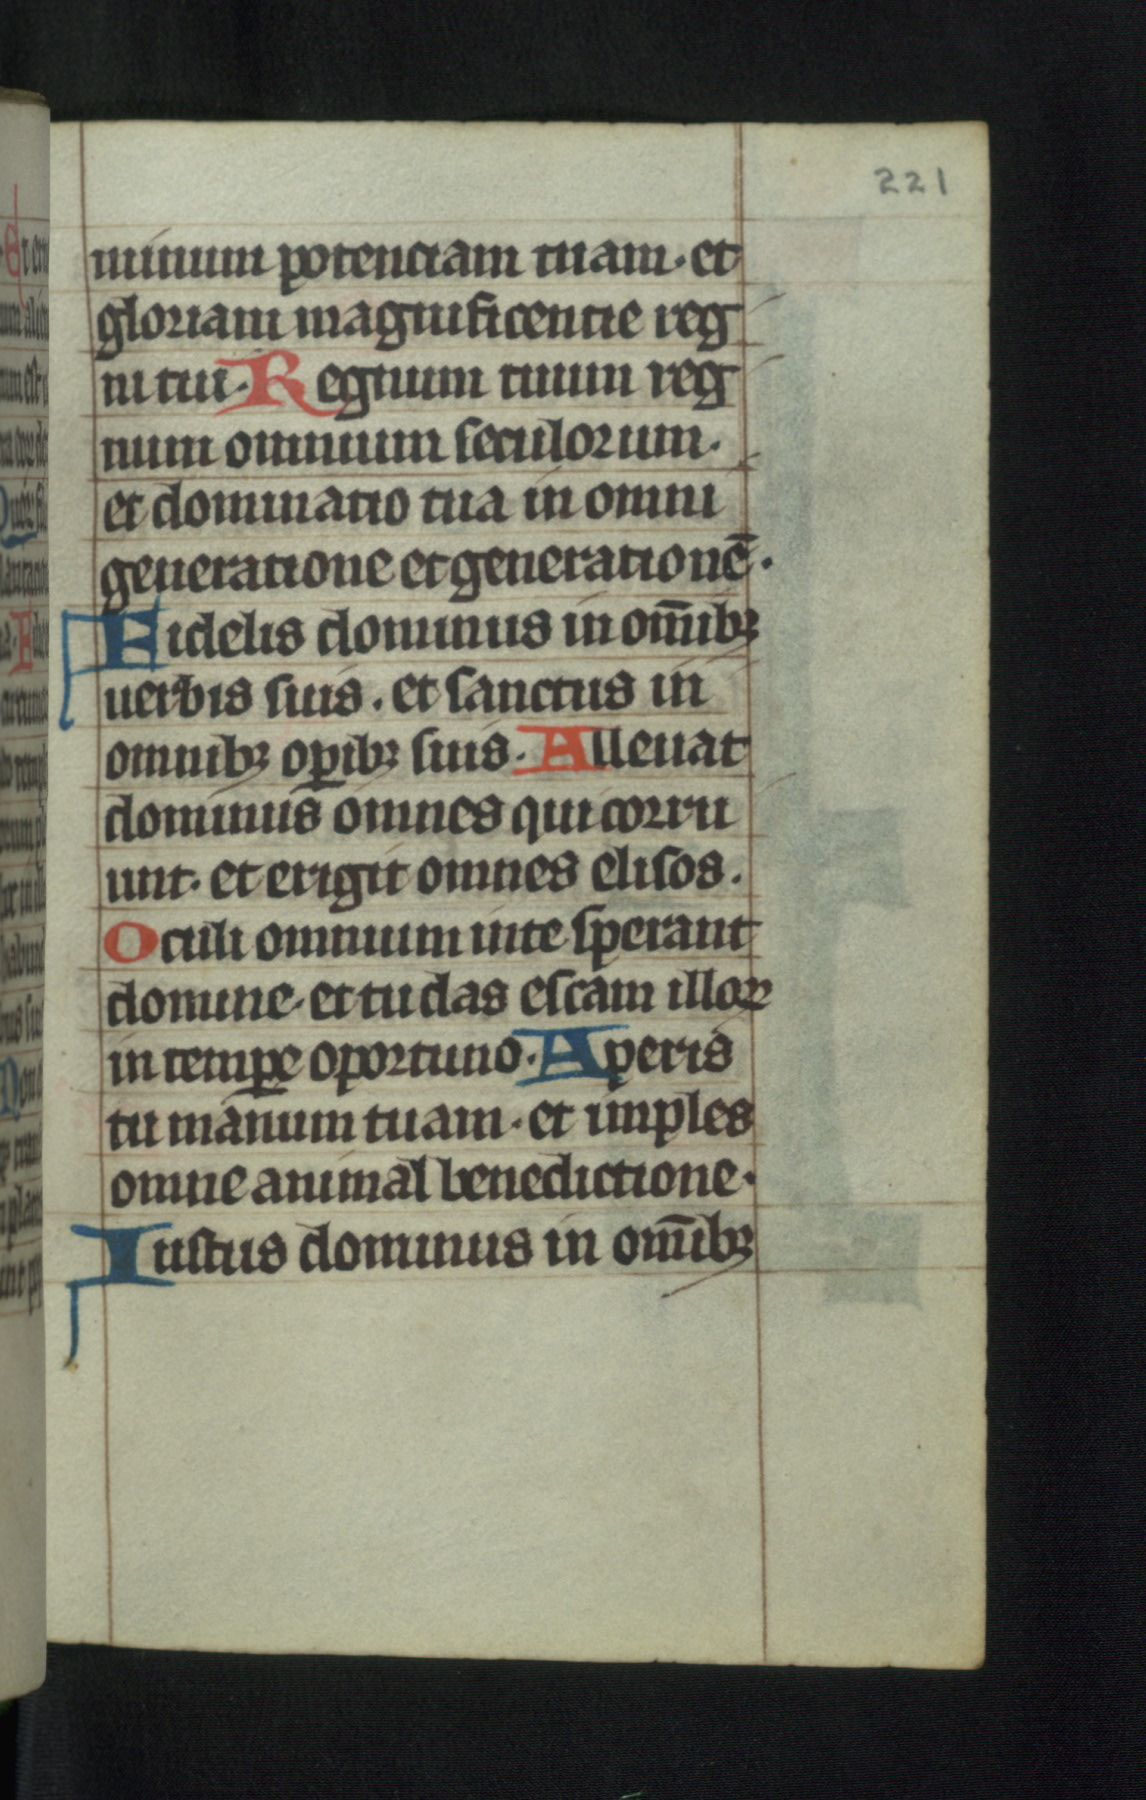 221
minum potenciam tuam. et
gloriam magnificentie reg
ni tui. Regnum tuum reg
num omnium seculorum.
et dominatio tua in omni
generatione et generationē.
Fidelis dominus in om̅ibꝫ
uerbis suis. et sanctus in
omnibꝫ oꝑibꝫ suis. Alleuat
dominus omnes qui corru
unt. et erigit omnes elisos.
Oculi omnium in te sperant
domine. et tu das escam illoꝝ
in temꝑe oportuno. Aperis
tu manum tuam. et imples
omne animal benedictione.
Iustus dominus in om̅ibꝫ